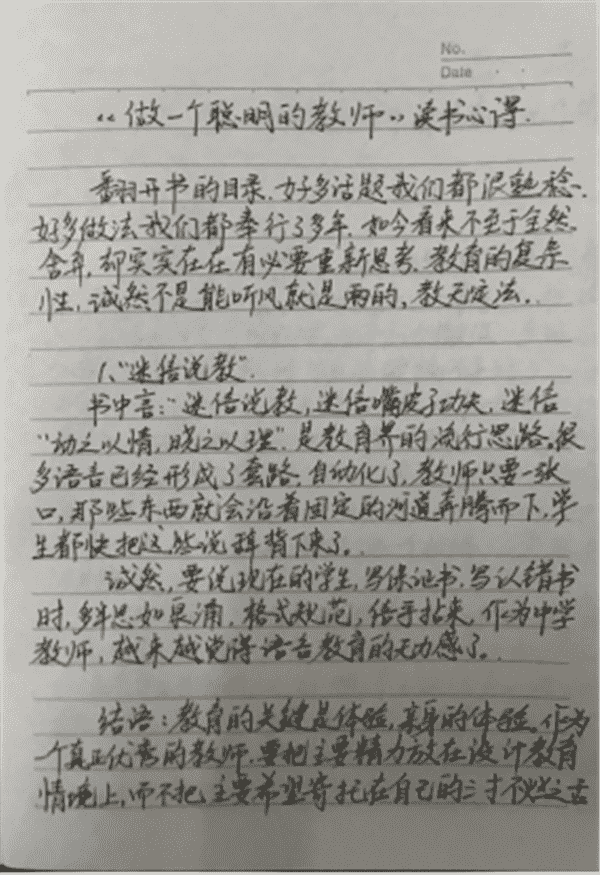 No.
Date
《做一个聪明的教师》读书心得.
翻开书的目录.好多话题我们都很熟稔.
好多做法我们都奉行了多年.如今看来不至于全然
舍弃,却实实在在有必要重新思考.教育的复杂
性,诚然不是能听风就是雨的,教无定法.
1、"迷信说教".
书中言:"迷信说教,迷信嘴皮子功夫,迷信
"动之以情,晓之以理".是教育界的流行思路.很
多语言已经形成了套路.自动化了,教师只要一张
口,那些东西就会沿着固定的河道奔腾而下,学
生都快把这些说辞背下来了.
诚然,要说现在的学生,写保证书.写认错书
时,多半思如泉涌,格式规范,信手拈来,作为中学
教师,越来越觉得语言教育的无力感了.
结语:教育的关键是体验,亲身的体验.作为
一个真正优秀的教师.要把主要精力放在设计教育
情境上,而不把主要希望寄托在自己的三寸不烂之舌